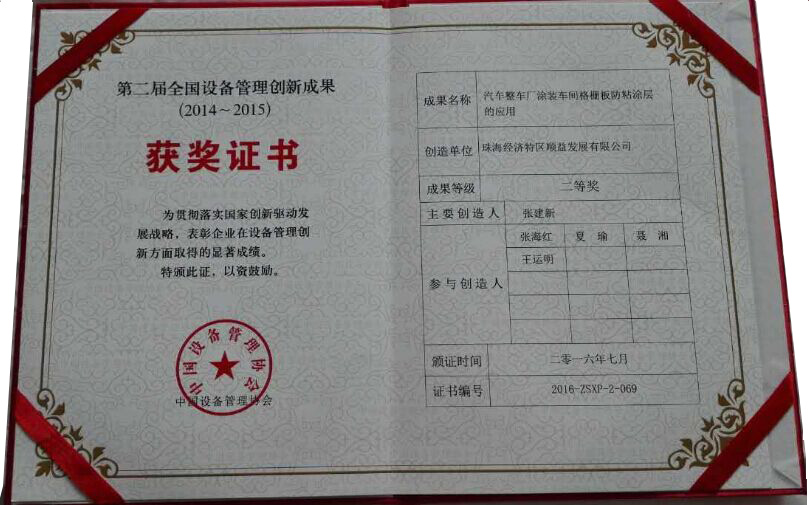 第二届全国设备管理创新成果
(2014～2015)
获奖证书
为贯彻落实国家创新驱动发
展战略，表彰企业在设备管理创
新方面取得的显著成绩。
特颁此证，以资鼓励。
中国设备管理协会
中国设备管理协会
成果名称 汽车整车厂涂装车间格栅板防粘涂层
的应用
创造单位 珠海经济特区顺益发展有限公司
成果等级 二等奖
主要创造人 张建新
参与创造人 张海红 夏瑜 聂湘
王运明
颁证时间 二零一六年七月
证书编号 2016-ZSXP-2-069